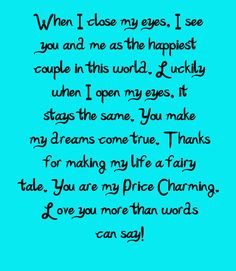 When I close my eyes. I see
you and me as the happiest
couple in this world. Luckily
when I open my eyes. it
stays the same. You make
my dreams come true. Thanks
for making my life a fairy
tale. You are my Price Charming.
Love you more than words
can say!